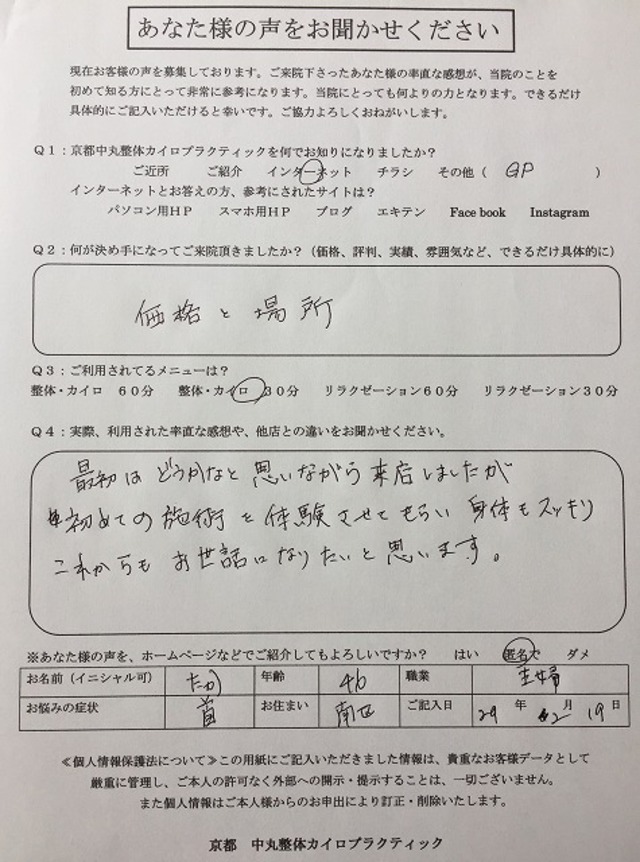 あなた様の声をお聞かせください
現在お客様の声を募集しております。ご来院下さったあなた様の率直な感想が、当院のことを
初めて知る方にとって非常に参考になります。当院にとっても何よりの力となります。できるだけ
具体的にご記入いただけると幸いです。ご協力よろしくおねがいします。
Q1：京都中丸整体カイロプラクティックを何でお知りになりましたか？
ご近所 ご紹介 インターネット チラシ その他（ GP ）
インターネットとお答えの方、参考にされたサイトは？
パソコン用HP スマホ用HP ブログ エキテン Face book Instagram
Q2：何が決め手になってご来院頂きましたか？（価格、評判、実績、雰囲気など、できるだけ具体的に）
価格と場所
Q3：ご利用されてるメニューは？
整体・カイロ 60分 整体・カイロ 30分 リラクゼーション60分 リラクゼーション30分
Q4：実際、利用された率直な感想や、他店との違いをお聞かせください。
最初はどうかなと思いながら来店しましたが
初めての施術を体験させてもらい身体もスッキリ
これからもお世話になりたいと思います。
※あなた様の声を、ホームページなどでご紹介してもよろしいですか？ はい 匿名で ダメ
お名前（イニシャル可） たか 年齢 46 職業 主婦
お悩みの症状 首 お住まい 南区 ご記入日 29 年 2 月 19 日
≪個人情報保護法について≫この用紙にご記入いただきました情報は、貴重なお客様データとして
厳重に管理し、ご本人の許可なく外部への開示・提示することは、一切ございません。
また個人情報はご本人様からのお申出により訂正・削除いたします。
京都 中丸整体カイロプラクティック